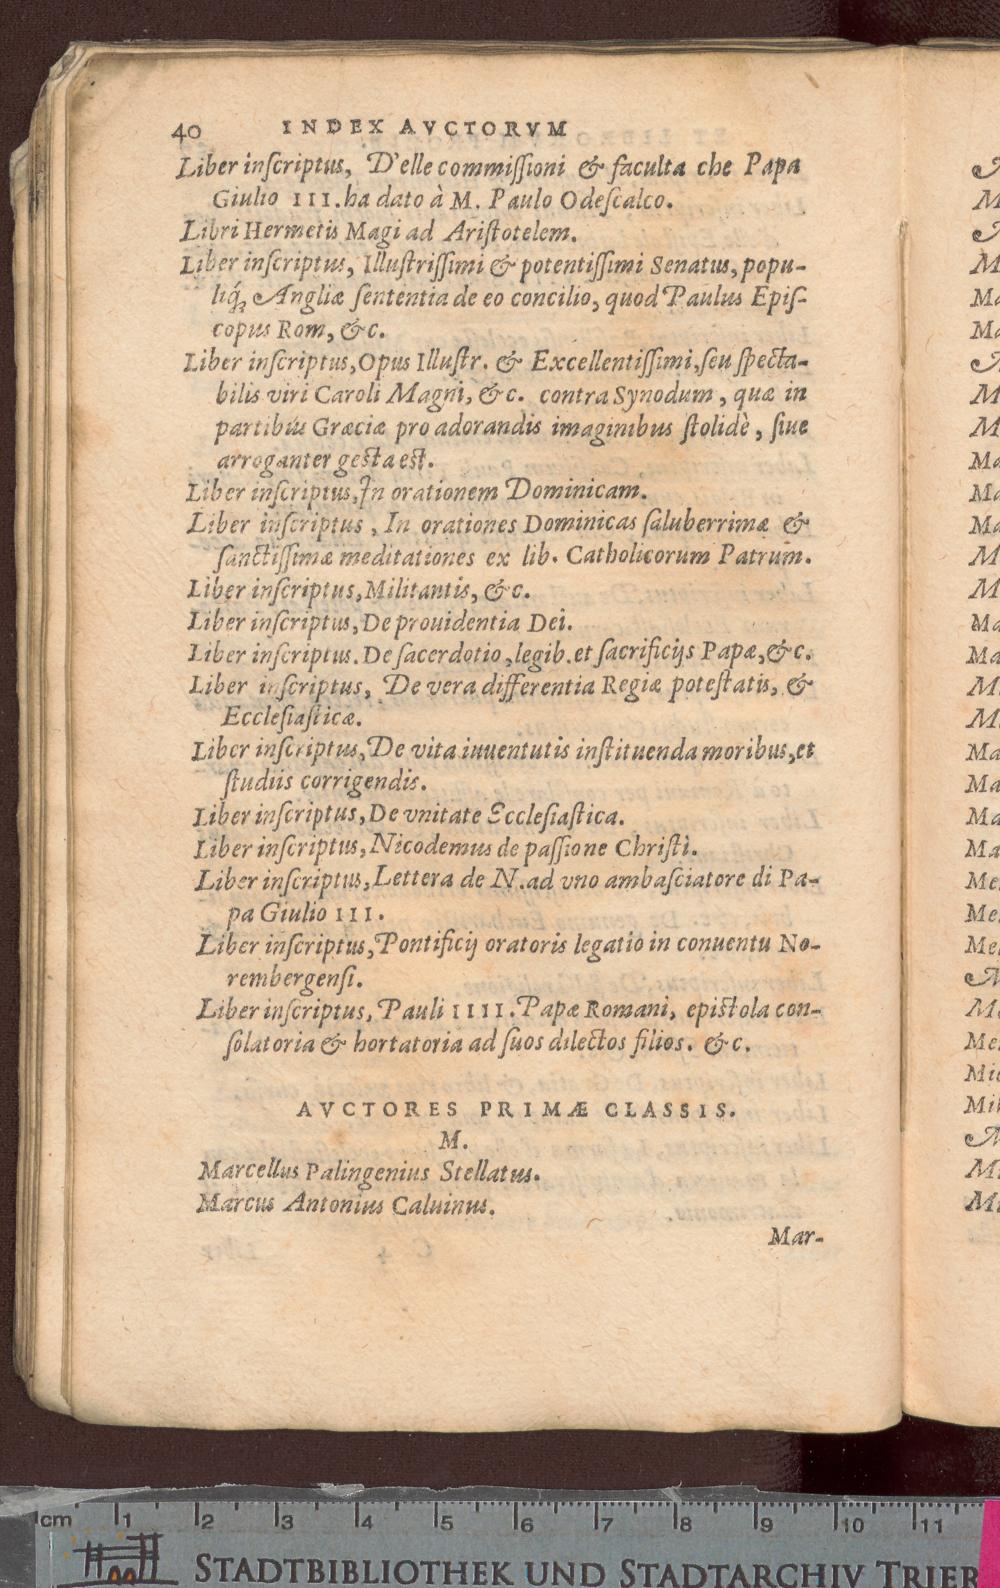 40 INDEX AVCTORVM
Liber inſcriptus, D'elle commiſſioni & faculta che Papa
Giulio III. ha dato à M. Paulo Odeſcalco.
Libri Hermetis Magi ad Ariſtotelem.
Liber inſcriptus, Illuſtriſſimi & potentiſſimi Senatus, popu-
liq́; Angliæ ſententia de eo concilio, quod Paulus Epiſ-
copus Rom, &c.
Liber inſcriptus, Opus Illuſtr. & Excellentiſſimi, ſeu ſpecta-
bilis viri Caroli Magni, &c. contra Synodum, quæ in
partibus Græciæ pro adorandis imaginibus ſtolidè, ſiue
arroganter geſta eſt.
Liber inſcriptus, In orationem Dominicam.
Liber inſcriptus, In orationes Dominicas ſaluberrimæ &
ſanctiſſimæ meditationes ex lib. Catholicorum Patrum.
Liber inſcriptus, Militantis, &c.
Liber inſcriptus, De prouidentia Dei.
Liber inſcriptus. De ſacerdotio, legib. et ſacrificijs Papæ, &c.
Liber inſcriptus, De vera differentia Regiæ poteſtatis, &
Eccleſiaſticæ.
Liber inſcriptus, De vita iuuentutis inſtituenda moribus, et
ſtudiis corrigendis.
Liber inſcriptus, De vnitate Eccleſiaſtica.
Liber inſcriptus, Nicodemus de paſſione Chriſti.
Liber inſcriptus, Lettera de N. ad vno ambaſciatore di Pa-
pa Giulio III.
Liber inſcriptus, Pontificij oratoris legatio in conuentu No-
rembergenſi.
Liber inſcriptus, Pauli IIII. Papæ Romani, epiſtola con-
ſolatoria & hortatoria ad ſuos dilectos filios. &c.
AVCTORES PRIMÆ CLASSIS.
M.
Marcellus Palingenius Stellatus.
Marcus Antonius Caluinus.
Mar-
cm 1 2 3 4 5 6 7 8 9 10 11
STADTBIBLIOTHEK UND STADTARCHIV TRIER